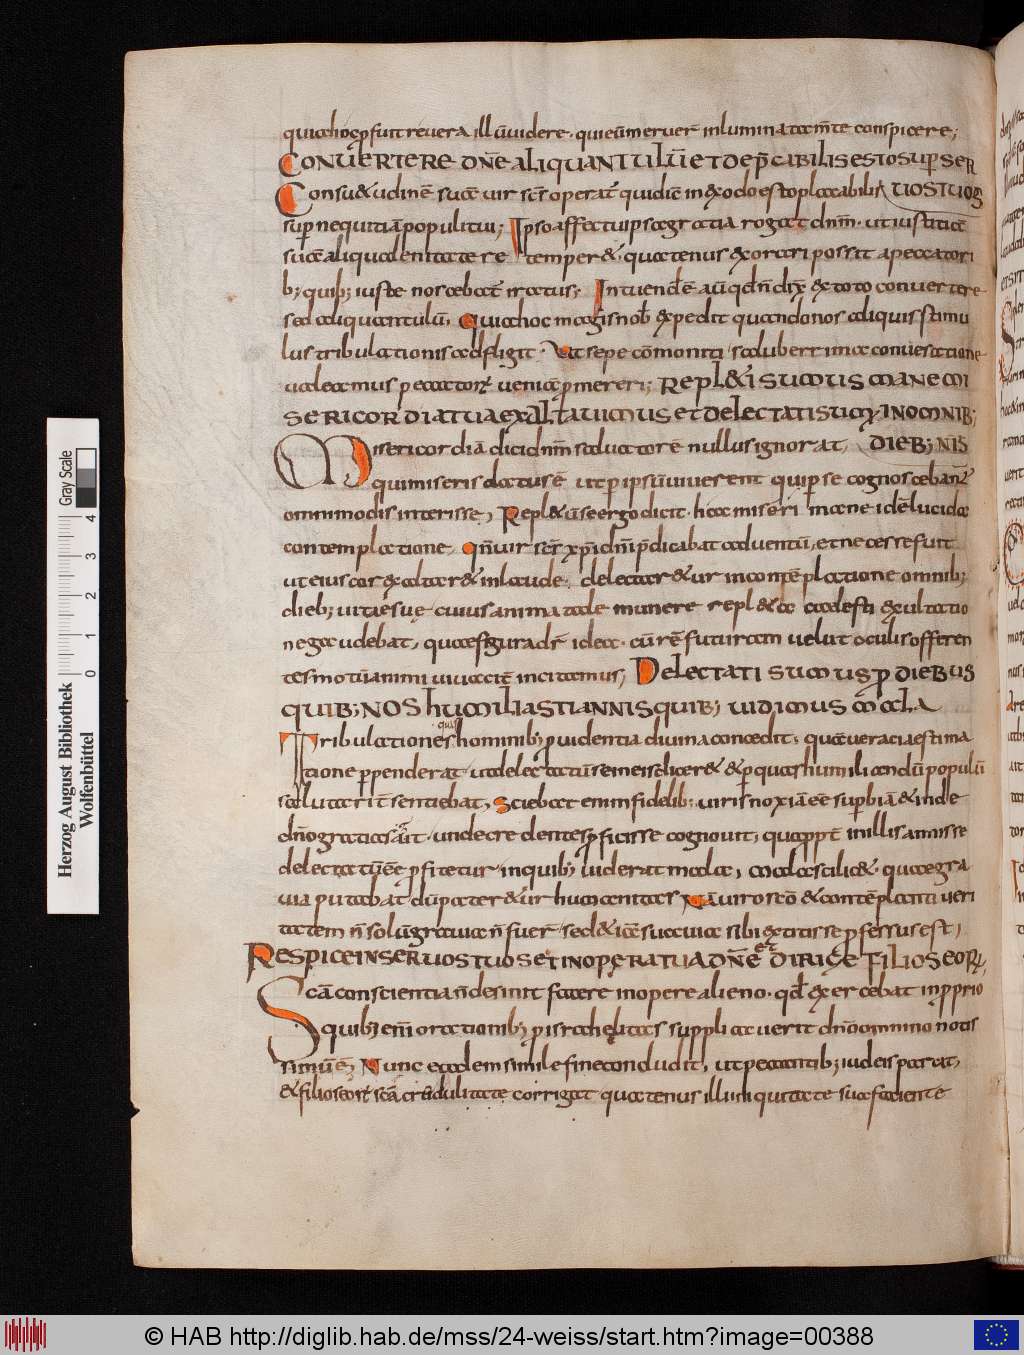 quia hoc p̄fuit revera illū videre · qui eū meruer̄ inluminata m̄te conspicere;
CONVERTERE DN̄E ALIQUANTULŪ ET DEP̄CABILIS ESTO SUP̄ SER
Consu&udinē suā vir scs̄ operat̄ quia sic in exodo est o placabilis VOS TUOS
sup̄ nequitiā populi tui; Ipso affectu ipsa gratia rogat dnm̄ · ut iustitiā
suā aliqua lenitate re temper& · quatenus exorari possit a peccatori
b; quib; iuste noscebat̄ iratus; Intuendū ē aū qd n̄ dix̄ ex toto convertere
sed aliquantulū, Quia hoc magis nob̄ expedit quando nos aliquis stimu
lus tribulationis adfligit · Ut sepe cōmoniti saluberrima conversatione
valeamus peccator̄ veniā p̄mereri; REPL&I SUMUS MANE MI
SERICORDIA TUA EXALTAVIMUS ET DELECTATI SUM; IN OMNIB;
Misericordiā dici dnm̄ salvatorē nullus ignorat, DIEB; NIS
qui miseris datus ē ut p̄ ipsū viverent qui p̄ se cognoscebant̄
omnimodis interisse, Repl&ū se ergo dicit · hac miseri mane id ē lucida
contemplatione qn̄ vir scs̄ xp̄i dn̄i p̄dicabat adventū, et necesse fuit
ut eius cor exaltar& in laude, delectar&ur in contēplatione omnib;
dieb; vitae suę cuius anima tale munere repl&a Ad est exultatio
nega videbat, quae figura dr̄ idea · cū rē futuram velut oculis offeren
tes motū animi vivaciē incitamus; DELECTATI SUMUS P̄ DIEBUS
QUIB; NOS HUMILIASTI ANNIS QUIB; VIDIMUS MALA
Tribulationes quas hominib; p̄videntia divina concedit, quā veraci aestima
tione p̄penderat · ut adelectatū se meis elicer& & p̄ quas humiliandū populū
salutarit̄ sentiebat, Sciebat enim fidelib; viris noxiā eē sup̄biā & inde
dn̄o gratias ait · unde credentes p̄ficisse cognovit, qua pp̄t in illis annis se
delectatū eē p̄fitetur · in quib; viderat mala, Malas scilic& · quae gra
via putabat dū pater&ur humanitas Nā viro scō & contēplanti veri
tatem n̄ solū gravia n̄ fuer̄ sed & iā suavia sibi extitisse p̄fessus est,
RESPICE IN SERVOS TUOS ET IN OPERA TUA DN̄E ET DIRIGE FILIOS EOR̄;
Scā conscientia n̄ desinit facere in opere alieno · qd exercebat in p̄prio
quib; em̄ orationib; p̄ israhelitas supplicaverit dn̄o omnino notis
simū ē; Nunc eadem simile fine concludit, ut peccantib; iudeis parcat,
& filios eor̄ scā credulitate corrigat quatenus illum quitate sua faciente
Herzog August Bibliothek
Wolfenbüttel
0 1 2 3 4
Gray Scale
© HAB http://diglib.hab.de/mss/24-weiss/start.htm?image=00388